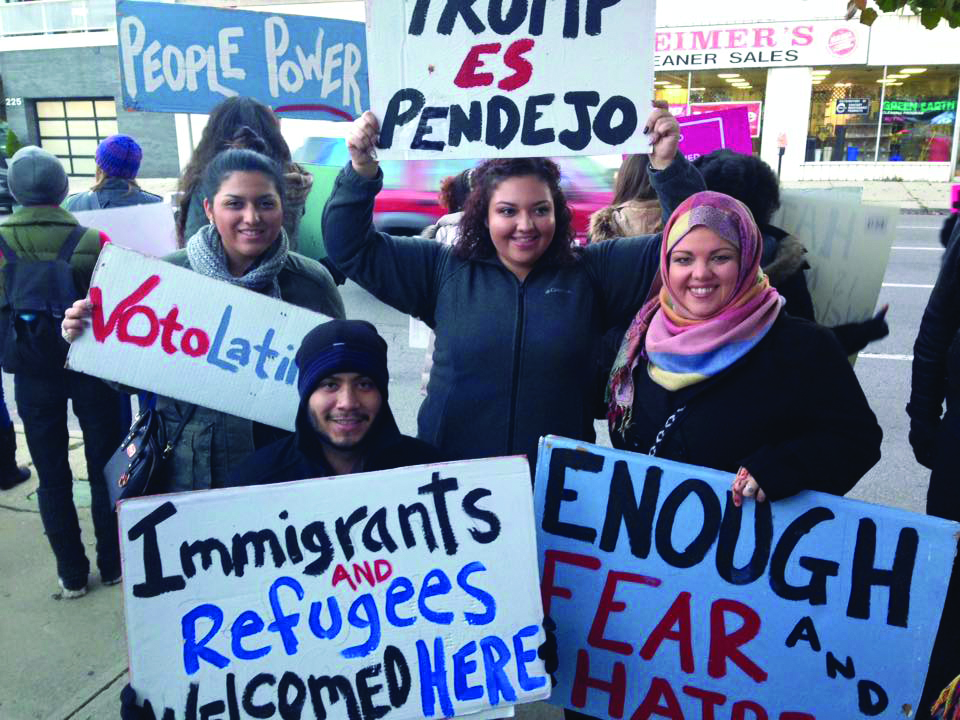 PEOPLE POWER
TRUMP
ES
PENDEJO
EIMER'S
EANER SALES
225
GREEN EARTH
VOTO Latin
Immigrants
AND
Refugees
WELCOMED HERE
ENOUGH
FEAR AND
HATR